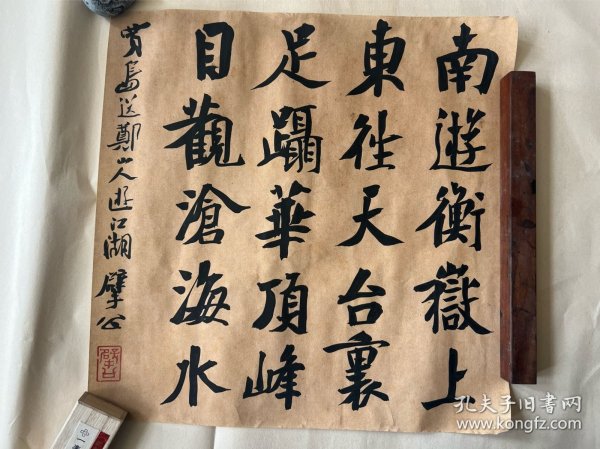 南遊衡嶽上
東往天台裏
足躡華頂峰
目觀滄海水
賈島送鄭山人遊江湖 擘公
孔夫子旧书网
www.kfz.cn